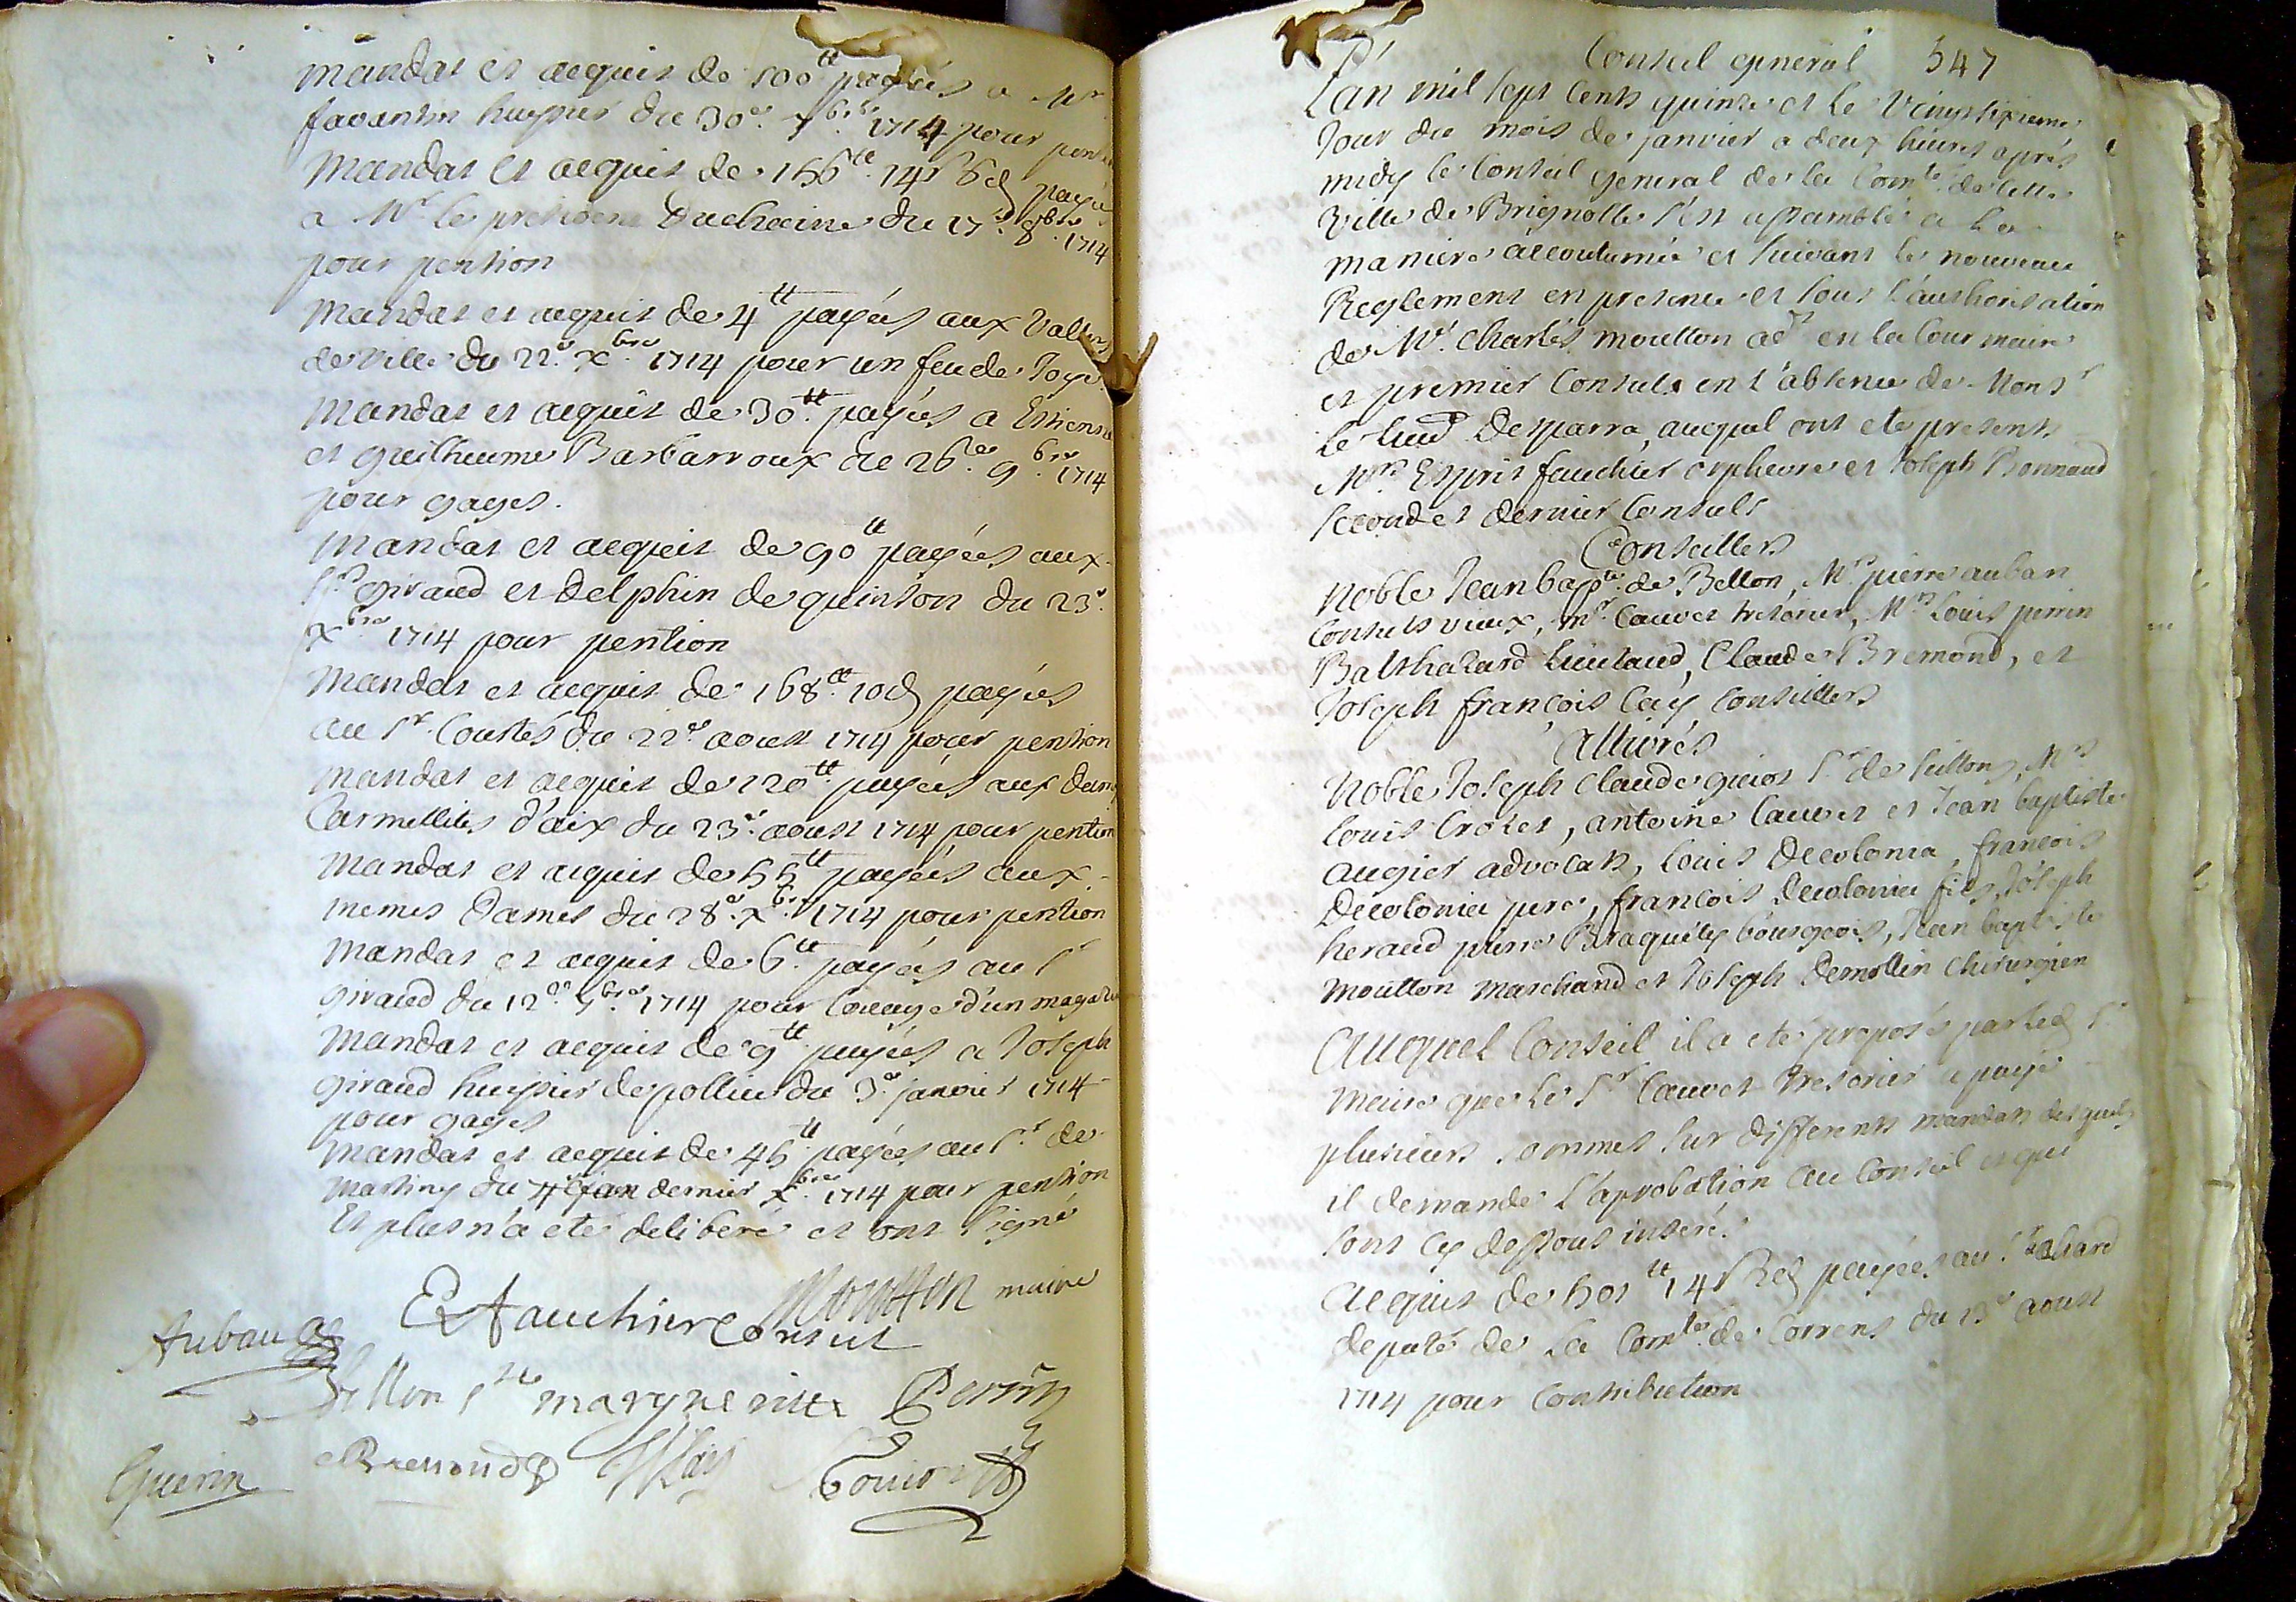 mandat et acquit de 500ᵗᵗ payées a Mʳ
favantin huissier du 30ᵉ 7ᵇʳᵉ 1714 pour
mandat et acquit de 156ᵗᵗ 14ˢ 6ᵈ payées
a Mʳ le president Duchaine du 17ᵉ 8ᵇʳᵉ 1714
pour pention
mandat et acquit de 4ᵗᵗ payées aux Vallets
de ville du 22ᵉ xᵇʳᵉ 1714 pour un feu de Joye
mandat et acquit de 30ᵗᵗ payées a Estienne
et guilheume Barbarroux de 26ᵉ 9ᵇʳᵉ 1714
pour gages.
mandat et acquit de 90ᵗᵗ payées aux
sʳˢ giraud et Delphin de quinson du 23ᵉ
xᵇʳᵉ 1714 pour pention
mandat et acquit de 168ᵗᵗ 10ᵈ payées
au sʳ Coustes du 22ᵉ aoust 1714 pour pention
mandat et acquit de 120ᵗᵗ payées aux dames
Carmellites d'aix du 23ᵉ aoust 1714 pour pention
mandat et acquit de 55ᵗᵗ payées aux
memes Dames du 28ᵉ xᵇʳᵉ 1714 pour pention
mandat et acquit de 6ᵗᵗ payées au sʳ
giraud du 12ᵉ 1714 pour louage d'un magazin
mandat et acquit de 9ᵗᵗ payées a Joseph
giraud huissier de pollice du 3ᵉ janvier 1714
pour gages
mandat et acquit de 45ᵗᵗ payées au sʳ de
Martiny du dernier xᵇʳᵉ 1714 pour pention
Et plus n'a eté deliberé et ont signé
Moutton maire
E fauchier Consul
Auban
Bellon sᵗᵉ margueritte Perrin
Bremond Lay
Guerin
Conseil general 547
L'an mil sept cents quinze et le vingt sixieme
Jour du mois de janvier a deux heures aprés
midy le Conseil general de la Comᵗᵉ de cette
ville de Brignolle s'est assamblé a la
maniere accoutumée et suivant le nouveau
Reglement en presence et sous l'authorisation
de Mʳ Charles moutton adᵗ en la Cour maire
et premier Consul en l'absence de Monsʳ
le Desparra, auquel ont eté presents
Mʳˢ Esprit fauchier orphevre et Joseph Bonnaud
second et dernier Consuls
Conseillers
Noble Jean bapᵗᵉ de Bellon, Mʳ pierre auban
Consuls vieux, mʳ Cauvet tresorier, Mʳˢ Louis perrin
Balthazard Lieutaud, Claude Bremond, et
Joseph françois Lay Conseillers
allivrés
Noble Joseph Claude guiot sʳ de seillons, Mʳˢ
louis Crozet, antoine Cauvet et Jean baptiste
augier advocats, louis Decolonia, françois
Decolonia pere, françois Decolonia fils, Joseph
heraud pierre Braquety bourgeois, Jean baptiste
moutton marchand et Joseph Demollin Chirurgien
Auquel Conseil il a eté proposé par led sʳ
maire que le sʳ Cauvet tresorier a payé
plusieurs sommes sur differents mandats desquels
il demande l'aprobation au Conseil et qui
sont cy dessous inseré.
acquit de 501ᵗᵗ 14ˢ 2ᵈ payées au sʳ
deputé de la Comᵗᵉ de Correns du 13ᵉ aoust
1714 pour Contribution